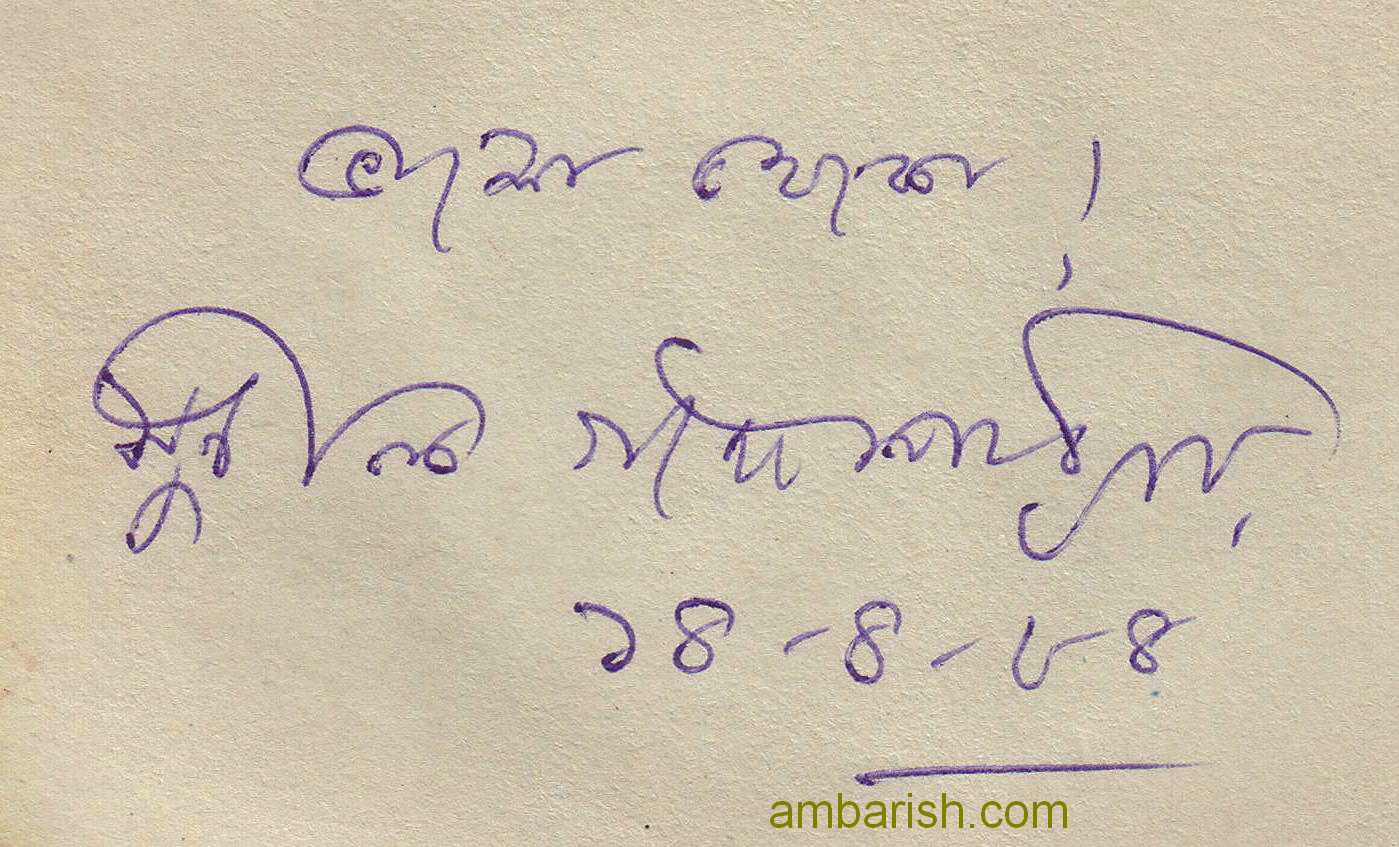 ভাল থেকো!
সুনীল গঙ্গোপাধ্যায়
১৪-৪-৮৪
ambarish.com